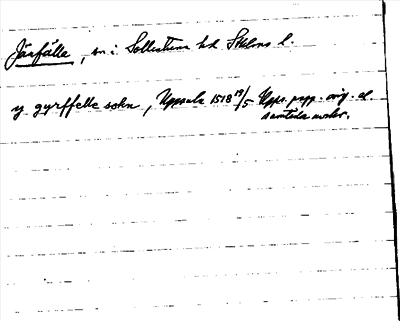 Järfälla, sn i Sollentuna hd Sthlms l.
y gyrffelle sokn, Uppsala 1518 19/5 Upps. papp. orig. el.
samtida